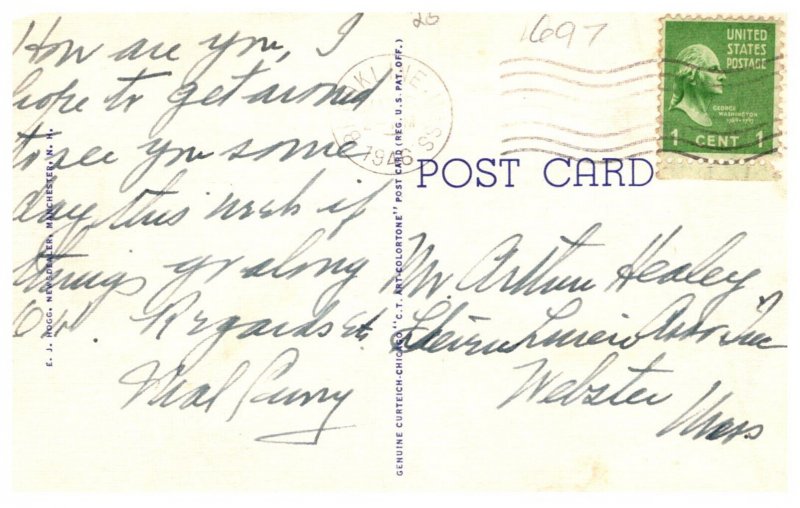 How are you, I
hope to get around
to see you some
day this week if
things go along
O.K. Regards
Neal Curry
E. J. HOGG, NEWSDEALER, MANCHESTER, N. H.
GENUINE CURTEICH-CHICAGO "C.T. ART-COLORTONE" POST CARD (REG. U.S. PAT. OFF.)
26
1697
1946
MASS
UNITED
STATES
POSTAGE
GEORGE
WASHINGTON
1789-1797
1 CENT 1
POST CARD
Mr. Arthur Healey
Inc
Webster
Mass